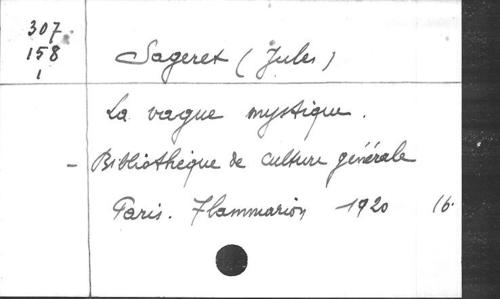 307
158
1
Sageret (Jules)
La vague mystique.
- Bibliothèque de culture générale
Paris. Flammarion 1920 16.